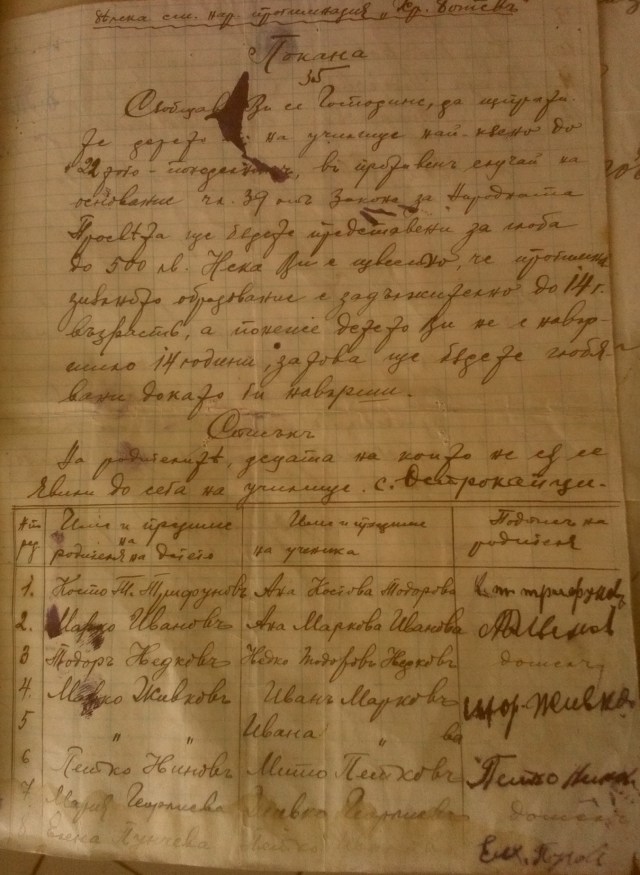 нар. прогимназия „Хр. Ботевъ"
Покана
35
Съобщава Ви се Господине, да изпрати-
те детето на училище най-късно до
22 того - понеделникъ, въ противенъ случай на
основание чл. 39 отъ Закона за Народната
Просвѣта ще бѫдете представени за глоба
до 500 лв. Нека Ви е известно, че прогимна-
зиалното образование е задължително до 14 г.
възрасть, а понеже детето Ви не е навър-
шило 14 години, затова ще бѫдете глобя-
вани докато ги навърши.
Списъкъ
На родителитѣ, децата на които не сѫ се
явили до сега на училище. с.
№ по ред
Име и презиме на родителя на детето
Име и презиме на ученика
Подписъ на родителя
1. Косто Т. Трифуновъ Ана Костова Тодорова К. Т. Трифуновъ
2. Марко Ивановъ Ана Маркова Иванова
3 Тодоръ Недковъ Недко Тодоровъ Недковъ
4. Марко Живковъ Иванъ Марковъ
5 „ „ Ивана „ ва
6 Петко Ниновъ Мито Петковъ Петко
7 Мария Георгиева Георгиевъ
8 Елена Пенчева